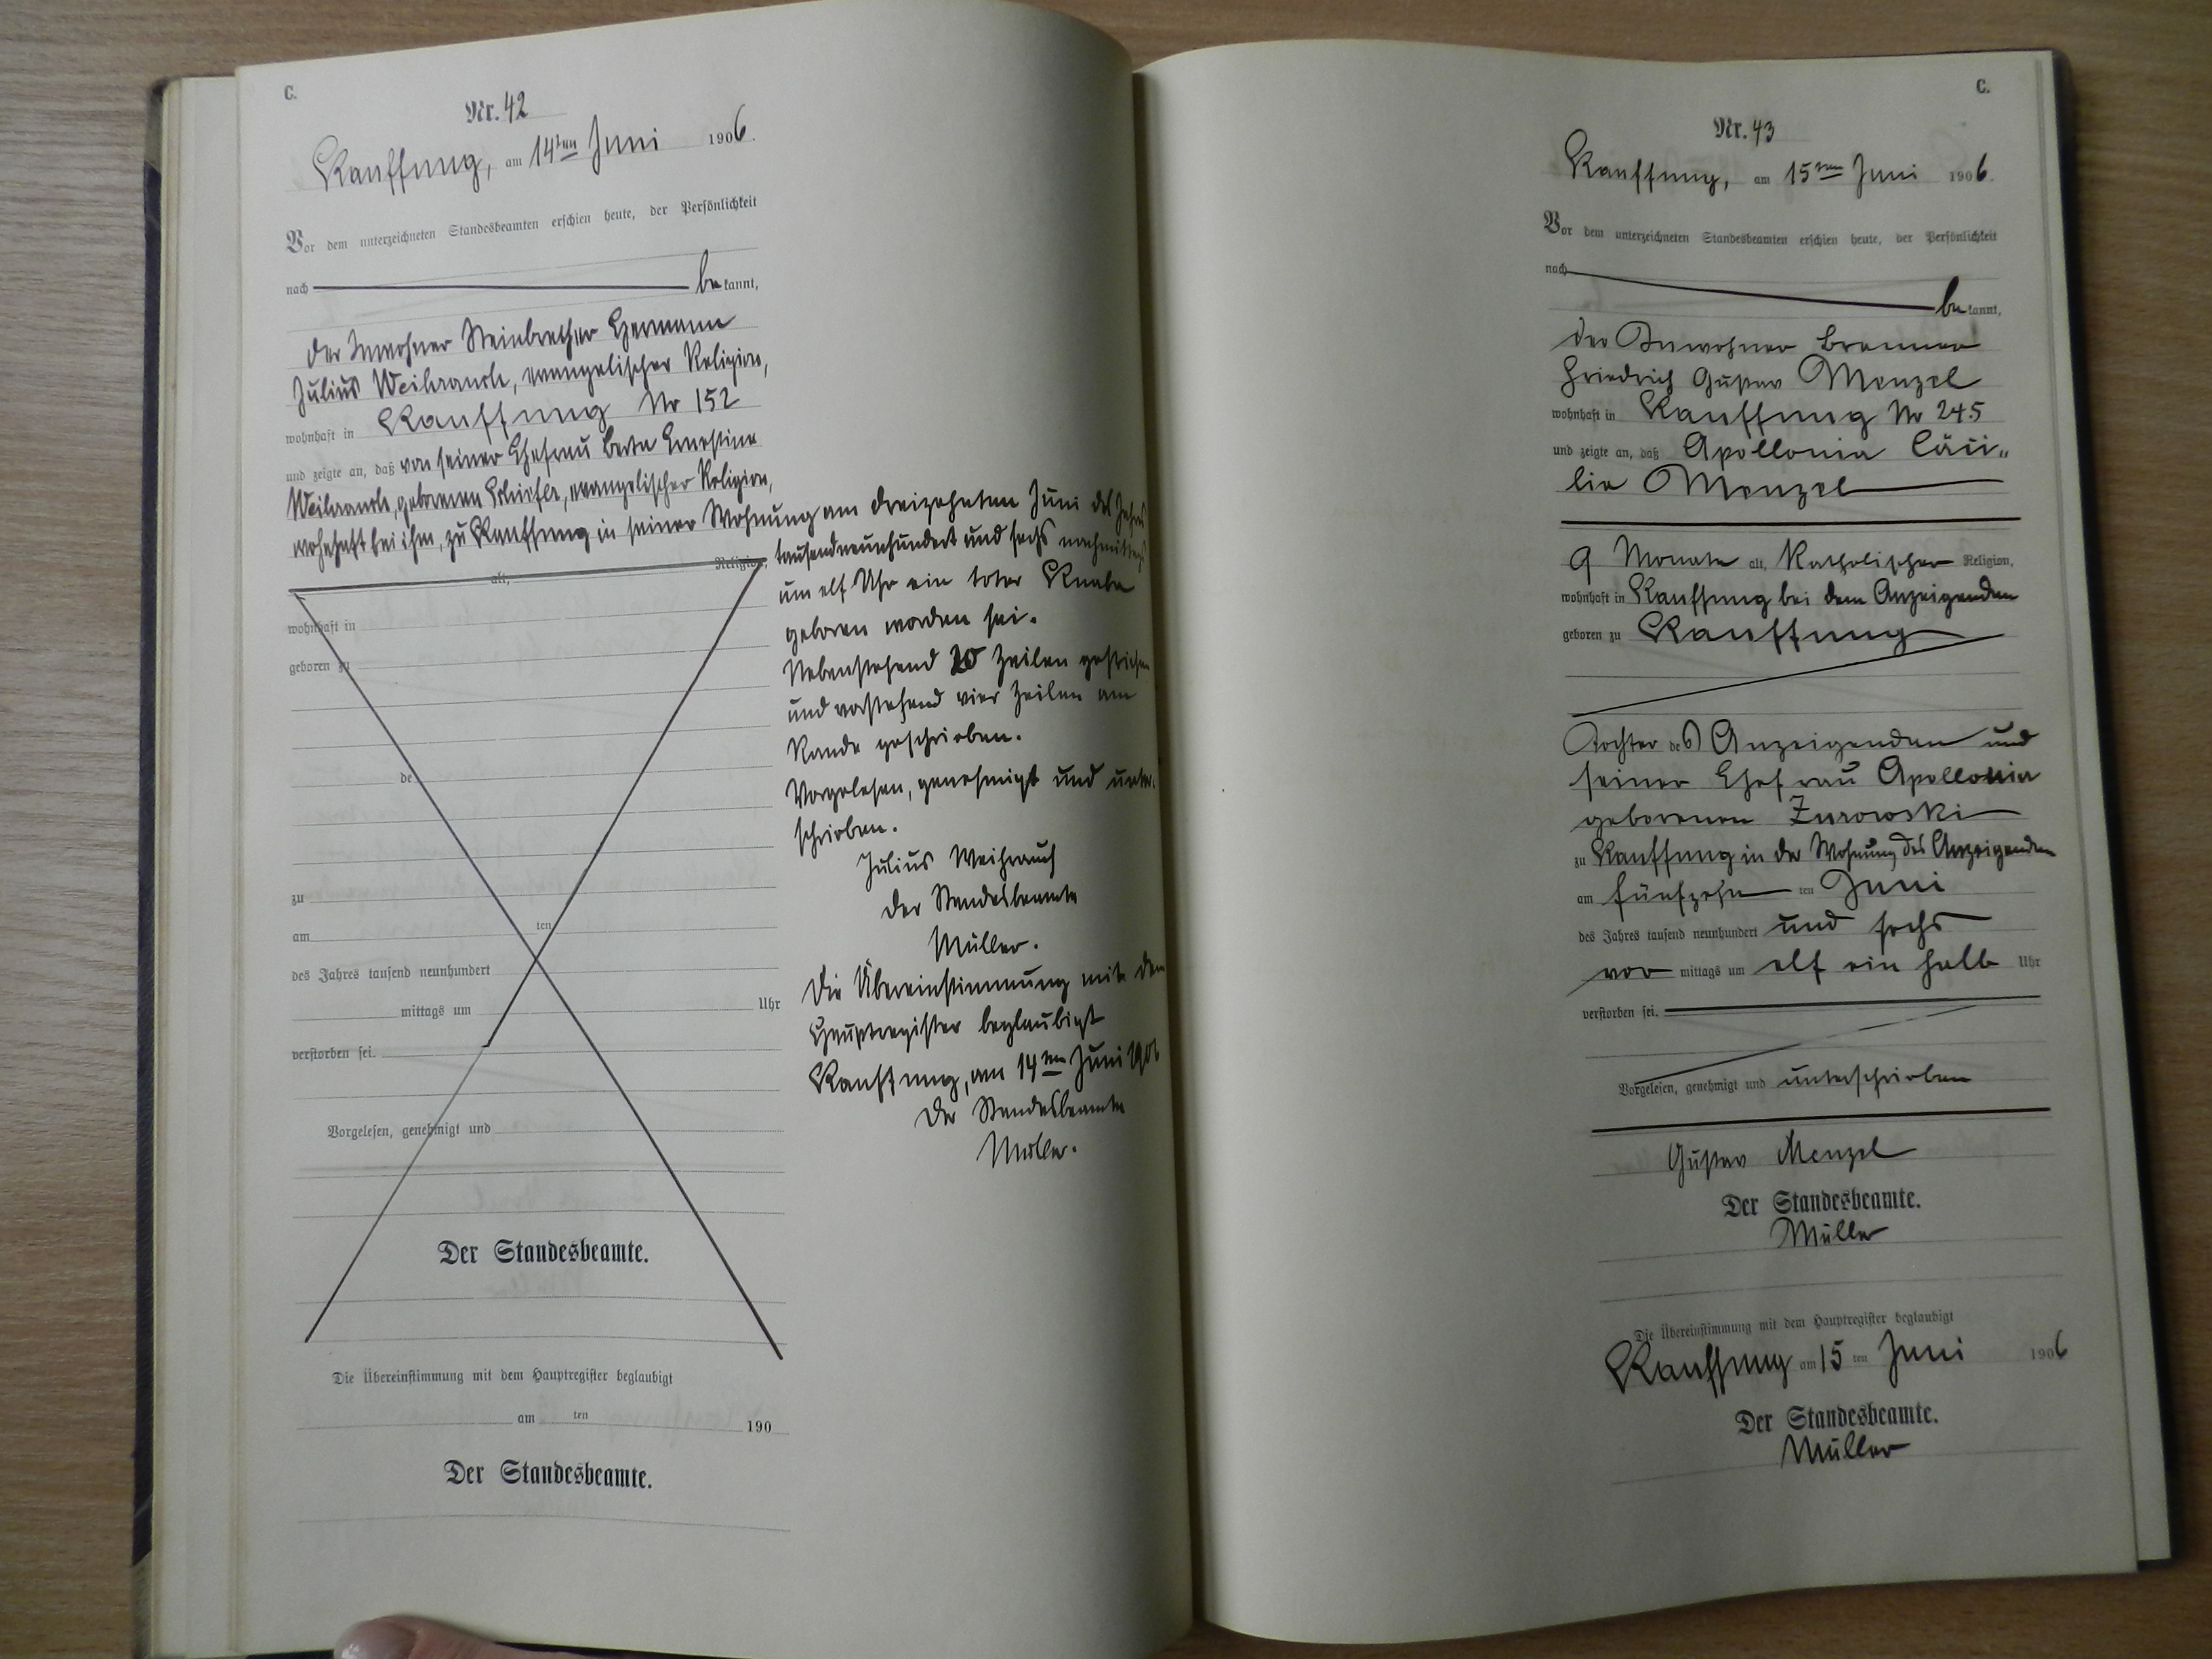 C.
Nr. 42
Kauffung, am 14ten Juni 1906.
Vor dem unterzeichneten Standesbeamten erschien heute, der Persönlichkeit
nach be kannt,
der Inwohner Steinbrecher Hermann
Julius Weihrauch, evangelischer Religion,
wohnhaft in Kauffung Nr 152
und zeigte an, daß von seiner Ehefrau Berta Ernestine
Weihrauch, geborenen Schiefer, evangelischer Religion,
wohnhaft bei ihm, zu Kauffung in seiner Wohnung am dreizehnten Juni des Jahres
tausendneunhundert und sechs nachmittags
um elf Uhr ein toter Knabe
geboren worden sei.
Nebenstehend 20 Zeilen gestrichen
und vorstehend vier Zeilen am
Rande geschrieben.
Vorgelesen, genehmigt und unter-
schrieben.
Julius Weihrauch
Der Standesbeamte
Müller.
Die Übereinstimmung mit dem
Hauptregister beglaubigt
Kauffung, am 14ten Juni 1906
Der Standesbeamte
Müller.
alt, Religion,
wohnhaft in
geboren zu
de
zu
am ten
des Jahres tausend neunhundert
mittags um Uhr
verstorben sei.
Vorgelesen, genehmigt und
Der Standesbeamte.
Die Übereinstimmung mit dem Hauptregister beglaubigt
am ten 190
Der Standesbeamte.
C.
Nr. 43
Kauffung, am 15ten Juni 1906.
Vor dem unterzeichneten Standesbeamten erschien heute, der Persönlichkeit
nach be kannt,
der Inwohner Brenner
Friedrich Gustav Menzel
wohnhaft in Kauffung Nr 245
und zeigte an, daß Apollonia Cäci„
lie Menzel
9 Monate alt, Katholischer Religion,
wohnhaft in Kauffung bei dem Anzeigenden
geboren zu Kauffung
Tochter des Anzeigenden und
seiner Ehefrau Apollonia
geborenen Zurowski
zu Kauffung in der Wohnung des Anzeigenden
am fünfzehn ten Juni
des Jahres tausend neunhundert und sechs
vor mittags um elf ein halb Uhr
verstorben sei.
Vorgelesen, genehmigt und unterschrieben
Gustav Menzel
Der Standesbeamte.
Müller
Die Übereinstimmung mit dem Hauptregister beglaubigt
Kauffung am 15 ten Juni 1906
Der Standesbeamte.
Müller